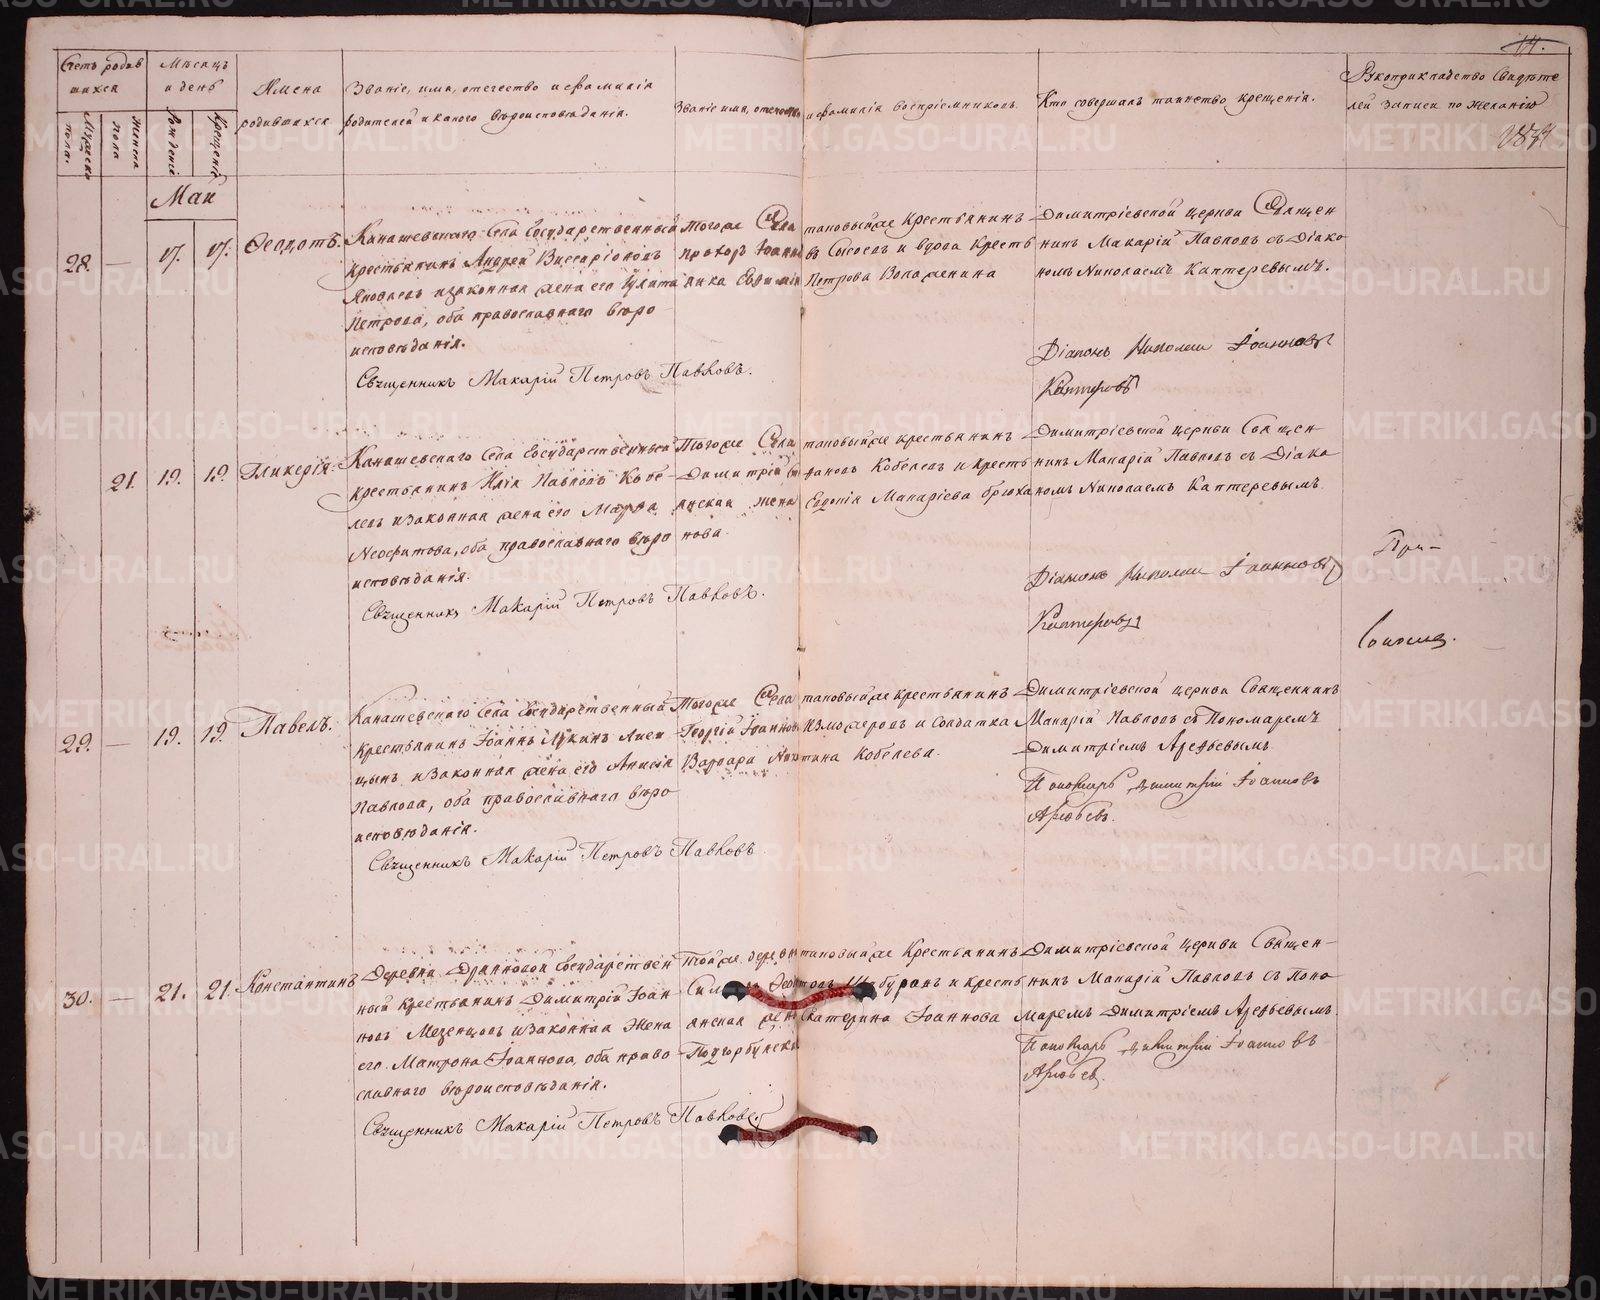 Счетъ родив
шихся
Мужеска
пола.
Женска
пола
Мѣсяцъ
и день
Рожденія
Крещенія
Имена
родившихся
Званіе, имя, отечество и фамилія
родителей и какого вѣроисповѣданія.
Званіе имя, отечество и фамилія воспріемниковъ.
Кто совершалъ таинство крещенія.
Рукоприкладство свидѣте
лей записи по желанію
14.
Май
28. — 17. 17. Ѳеодотъ.
Канашевскаго Села Государственный
крестьянинъ Андрей Виссаріоновъ
Яковлевъ и законная жена его Іулита
Петрова, оба православнаго вѣро
исповѣданія.
Священникъ Макарій Петровъ Павловъ.
Тогоже Села таковыйже крестьянинъ
Петрова Воложенина
Димитріевской церкви Священ
никъ Макарій Павловъ съ Діако
номъ Николаемъ Каптеревымъ.
Діаконъ Николай Іоанновъ
Каптеревъ
21. 19. 19. Гликерія.
Канашевскаго Села Государственный
крестьянинъ Илія Павловъ Кобе-
левъ и законная жена его Марѳа
Неофитова, оба православнаго вѣро
исповѣданія.
Священникъ Макарій Петровъ Павловъ.
Тогоже Села таковыйже крестьянинъ
Димитрій Кобелевъ и кресть
янская жена Евдокія Макарьева брюха
нова.
Димитріевской церкви Священ-
никъ Макарій Павловъ съ Діако
номъ Николаемъ Каптеревымъ
Діаконъ Николай Іоанновъ
Каптеревъ
При-
29. — 19. 19. Павелъ.
Канашевскаго Села Государственный
крестьянинъ Іоаннъ Лукинъ Лиси
цынъ и законная жена его Анисія
Павлова, оба православнаго вѣро
исповѣданія.
Священникъ Макарій Петровъ Павловъ
Тогоже Села таковыйже крестьянинъ
Георгій Іоанновъ Изможеровъ и солдатка
Варвара Никитина Кобелева.
Димитріевской церкви Священникъ
Макарій Павловъ съ Пономаремъ
Димитріемъ Арефьевымъ
Пономарь Димитрій Іоанновъ
Арефьевъ.
30. — 21. 21. Константинъ
Деревни Дранновой Государствен
ной крестьянинъ Димитрій Іоан
новъ Мезенцовъ и законная жена
его Матрона Іоаннова, оба право
славнаго вѣроисповѣданія.
Священникъ Макарій Петровъ Павловъ
Тойже деревни таковыйже крестьянинъ
и кресть
янская жена Екатерина Іоаннова
Подгорбунска
Димитріевской церкви Священ-
никъ Макарій Павловъ съ Поно
маремъ Димитріемъ Арефьевымъ
Пономарь Димитрій Іоанновъ
Арефьевъ.
METRIKI.GASO-URAL.RU